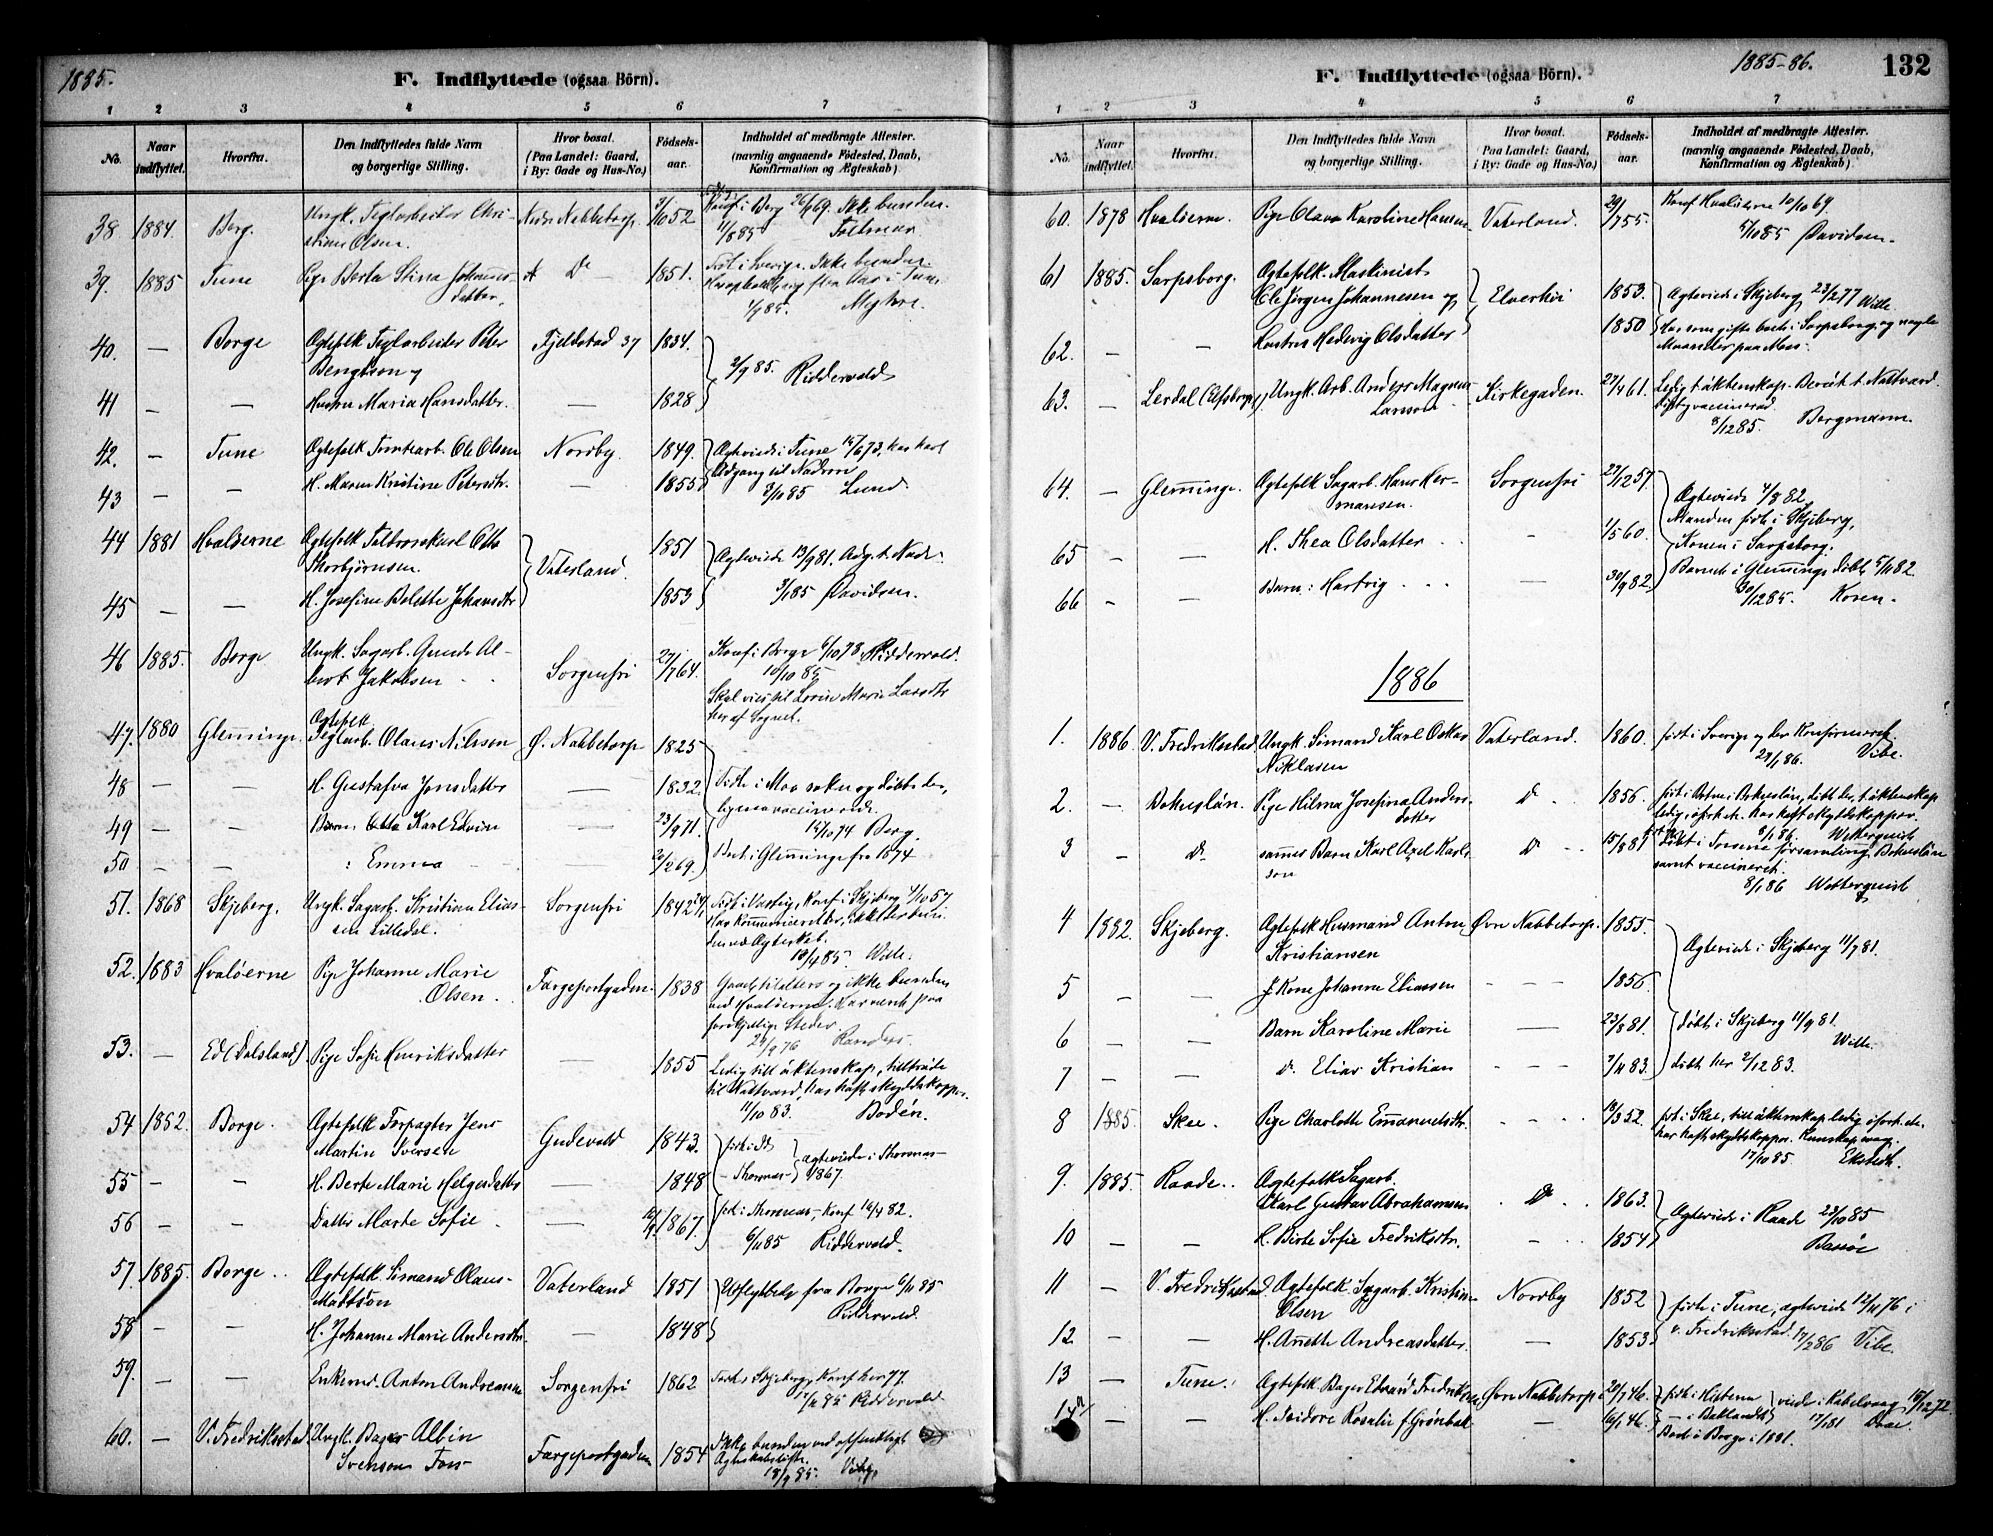 1885.
F. Indflyttede (ogsaa Börn).
1 2 3 4 5 6 7
No.
Naar indflyttet.
Hvorfra.
Den Indflyttedes fulde Navn og borgerlige Stilling.
Hvor bosat. (Paa Landet: Gaard, i By: Gade og Hus-No.)
Födsels-aar.
Indholdet af medbragte Attester. (navnlig angaaende Födested, Daab, Konfirmation og Ægteskab)
38 1884. Berg. Ungk. Teglarbeider Chri-
stian Olsen. Nedre Nabbetorp 1852 Konf i Berg 26/9 69. Ikke bunden.
11/8 85
39. 1885 Tune Pige Berta Stina Johannes-
datter. Do 1851. Födt i Sverige. Ikke bunden.
1/9 85.
40. — Borge Ægtefolk Teglarbeider Peter
Bengtson og Fjeldstad 37 1834. 2/9 85. Riddervold
41 — — Hustru Maria Hansdatter. — 1828
42. — Tune Ægtefolk Tomtearb. Ole Olsen Nordby. 1849. Ægteviede i Tune 14/6 73. har havt
Adgang til Nadvere
43 — — H. Maren Kristine Petersdtr. — 1855 3/10 85 Lund.
44 1881 Hvalöerne Ægtefolk Otto
Thorbjörnsen. Vaterland. 1851 Ægteviede 13/9 81. Adg. t. Nadv.
45 — — H. Josefine Bolette Johansdtr 1853 3/1 85 Davidsen.
46 1885. Borge Ungk. Sagarb. Al-
bert Jakobsen Sorgenfri 27/7 64. Konf i Borge 6/10 78 Riddervold.
10/10 85
Skal vies til Marie Larsdtr
her af Sognet.
47. 1880 Glemminge. Ægtefolk
Teglarb. Olaus Nilssen Ö. Nabbetorp 1825
48 — H. Gustafva Jonsdatter — 1832. Födte i Mo sokn og döbt der,
ligesaa vaccinerede.
49 — — Barn: Otto Karl Edvin — 23/9 71. 14/10 74 Berg.
50 — — : Emma 26/2 69. Boet i Glemminge fra 1874
51. 1868 Skjeberg. Ungk. Sagarb. Kristian Elias-
sen Lilledal. Sorgenfri 1842 Födt i Varteig, Konf i Skjeberg 4/10 57.
Har kommuniceret der, ikke der bun-
den ved Ægteskab.
18/4 85. Wille.
52. 1883 Hvalöerne Pige Johanne Marie
Olsen. Færgeportgaden. 1838 Gaaet til Alters og ikke bunden
ved Hvalöerne. Har været paa
forskjellige Steder.
53. — Ed (Dalsland). Pige Sofie Henriksdatter — 1855 Ledig till äktenskap, tillträde
til Nattvard, har haft skyddskoppor.
11/10 83. Bodén.
54 1882. Borge. Ægtefolk Forpagter Jens
Martin Iversen Gudevold 1843. födt i do
55 — — H. Berte Marie Helgesdatter 1848 Thomas- Ægteviede i Thomas-
1867.
56 — — Datter Marte Sofie — 1867. födt i Thomas-, Konf 16/4 82.
6/11 85 Riddervold.
57. 1885. Borge Ægtefolk Simand Olaus-
Mattson Vaterland 1851 Udflyttede fra Borge 6/11 85
Riddervold.
58 — — H. Johanne Marie Andersdtr. — 1848
59. — — Enkemd. Anton Andreassen Sorgenfri 1862 Födt i Skjeberg, Konf her 77.
85 Riddervold
60. — V. Fredriksstad Ungk. Bager Albin
Svenson Færgeportgaden 1854 Ikke bunden ved offentligt
Ægteskabslöfte.
18/9 85. Vibe.
1885-86. 132
F. Indflyttede (ogsaa Börn).
1 2 3 4 5 6 7
No.
Naar indflyttet.
Hvorfra.
Den Indflyttedes fulde Navn og borgerlige Stilling.
Hvor bosat. (Paa Landet: Gaard, i By: Gade og Hus-No.)
Födsels-aar.
Indholdet af medbragte Attester. (navnlig angaaende Födested, Daab, Konfirmation og Ægteskab)
60. 1878 Hvalöerne. Pige Olava Karoline Hansen Vaterland. 29/7 55. Konf Hvalöerne 10/10 69.
5/10 85 Davidsen.
61 1885. Sarpsborg. Ægtefolk. Maskinist
Ole Jörgen Johannesen og Elverhöi 1853. Ægteviede i Skjeberg 23/2 77 Wille.
62. — — Hustru Hedevig Olsdatter 1850 Har som gifte boet i Sarpsborg og nogle
Maaneder paa Moss.
63. — Lerdal (Elfsborg) Ungk. Arb. Anders Magnus
Larsson Kirkegaden. 27/4 61. Ledig t. äktenskap. Berät. t. Nattvard.
vaccinerad.
8/12 85. Bergmann.
64. — Glemminge. Ægtefolk Sagarb. Hans Her-
mansen. Sorgenfri 27/12 57. Ægteviede 4/8 82
Manden födt i Skjeberg,
65 — — H. Thea Olsdatter — 1/5 60. Konen i Sarpsborg.
66 — — Barn: Hartvig — 30/9 82 Barnet i Glemminge döbt 5/11 82
30/12 85. Koren.
1886
1. 1886 V. Fredriksstad Ungk. Simand Karl Oskar
Niklasen Vaterland. 1860. födt i Sverige og der Konfirmeret.
29/1 86. Vibe.
2. — Bohuslän. Pige Hilma Josefina Anders-
datter do 1856. födt i Bohuslän, döbt der, t. äktenskap
ledig, har haft skyddskoppor.
8/1 86. Wetterquist
3 — do sammes Barn Karl Axel Karls-
son do 15/8 81 Döbt i församling Bohuslän
samt vaccineret.
8/1 86 Wetterquist
4 1882. Skjeberg. Ægtefolk Husmand Anton
Kristiansen Övre Nabbetorp. 1855. Ægteviede i Skjeberg 11/7 81.
5 — — H. Kone Johanne Eliassen — 1856.
6 — — Barn Karoline Marie — 23/8 81. döbt i Skjeberg 11/9 81.
Wille.
7 — — do. Elias Kristian — 7/11 83. döbt her 2/12 83.
8 1885. Skee. Pige Charlotte Emanuelsdtr. — 13/3 52. födt i Skee, till äktenskap ledig
har haft skyddskoppor. Kunskap svag.
17/10 85. Ekstedt.
9. 1885. Raade. Ægtefolk Sagarb.
Karl Gustav Abrahamsen do 1863. Ægteviede i Raade 23/10 85
10 — — H. Birte Sofie Fredriksdtr. — 1854 Bassöe
11 — V. Fredriksstad Ægtefolk Sagarb. Kristian
Olsen Nordby 1852 födte i Tune, ægteviede 12/11 76 i
12 — — H. Anette Andreasdatter — 1853. V. Fredriksstad. 17/2 86 Vibe.
13 — Tune. Ægtefolk Bager Edvard Fredriksen Övre Nabbetorp 29/7 46. födt i
14 — — H. Isidore Rosalie f. Grönbek — 6/1 46. viede i Kabelvaag 15/12 72
Boet i Borge i 1881.